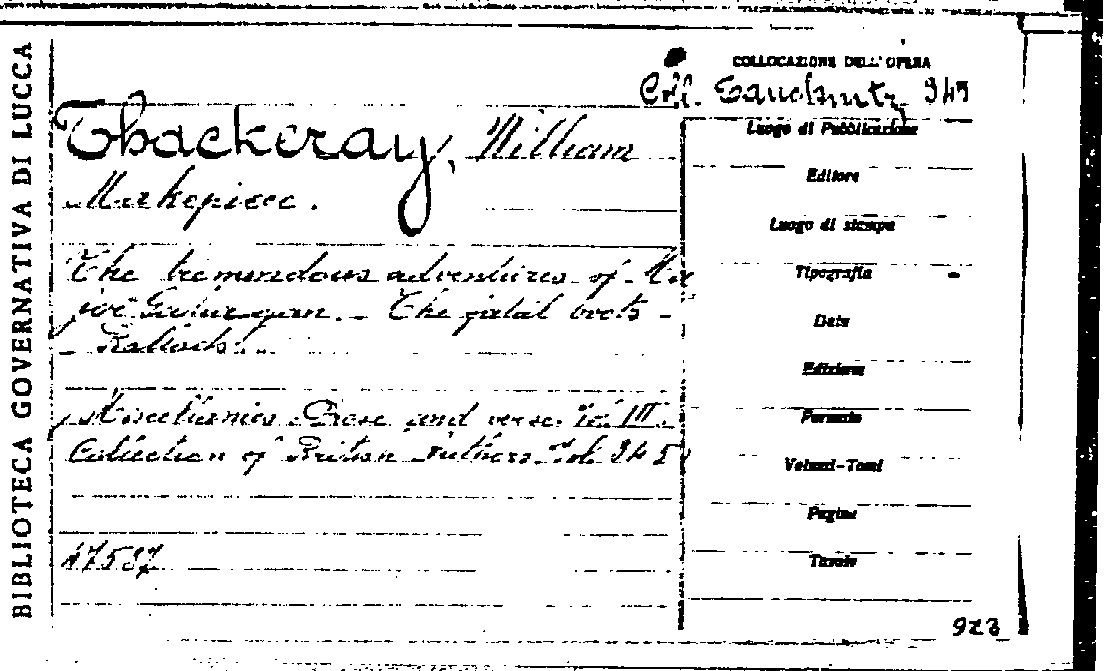 BIBLIOTECA GOVERNATIVA DI LUCCA
COLLOCAZIONE DELL'OPERA
Coll. Tauchnitz 345
Thackeray, William
Markepiece.
The tremendous adventures of Ma
jor Gahargan. - The fatal boots -
- Ballads.
Miscellanies Prose and verse Vol. III.
Collection of British Authors Vol. 345
47587
Luogo di Pubblicazione
Editore
Luogo di stampa
Tipografia
Data
Edizione
Formato
Volumi-Tomi
Pagine
Tavole
923